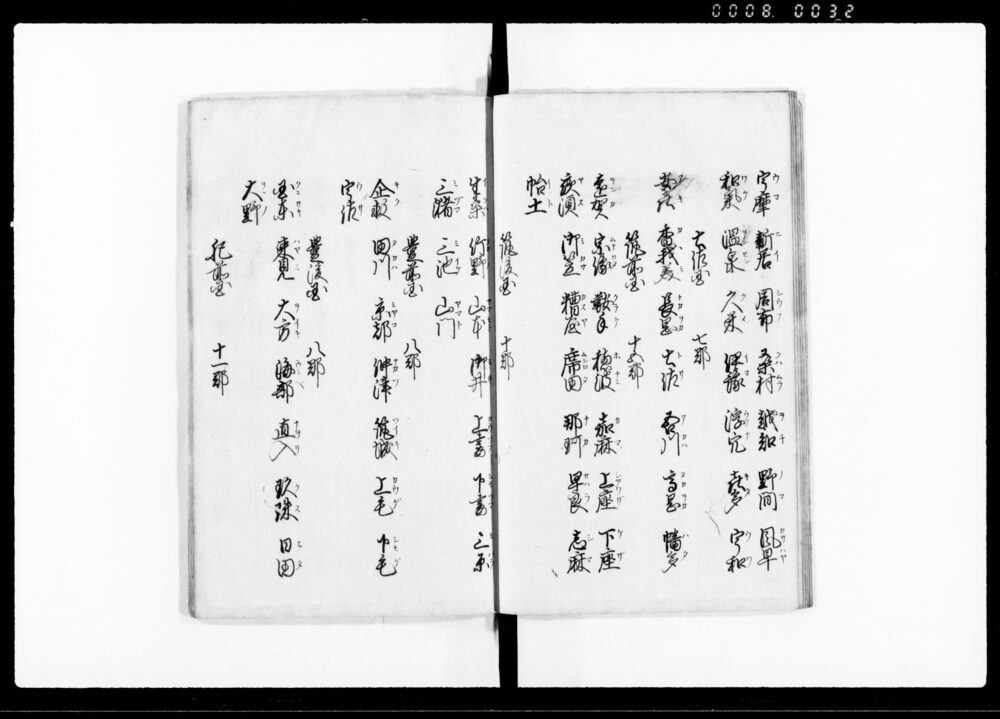 0008. 0032
宇摩 新居 周布 桑村 越知 野間 風早
和氣 温泉 久米 伊豫 浮穴 喜多 宇和
土佐国 七郡
安芸 香我美 長岡 土佐 吾川 高岡 幡多
筑前国 十五郡
遠賀 宗像 鞍手 穂波 嘉麻 上座 下座
夜須 御笠 糟屋 席田 那珂 早良 志麻
怡土
筑後国 十郡
生葉 竹野 山本 御井 上妻 下妻 三原
三潴 三池 山門
豊前国 八郡
企救 田川 京都 仲津 筑城 上毛 下毛
宇佐
豊後国 八郡
国東 速見 大方 海部 直入 玖珠 日田
大野
肥前国 十一郡